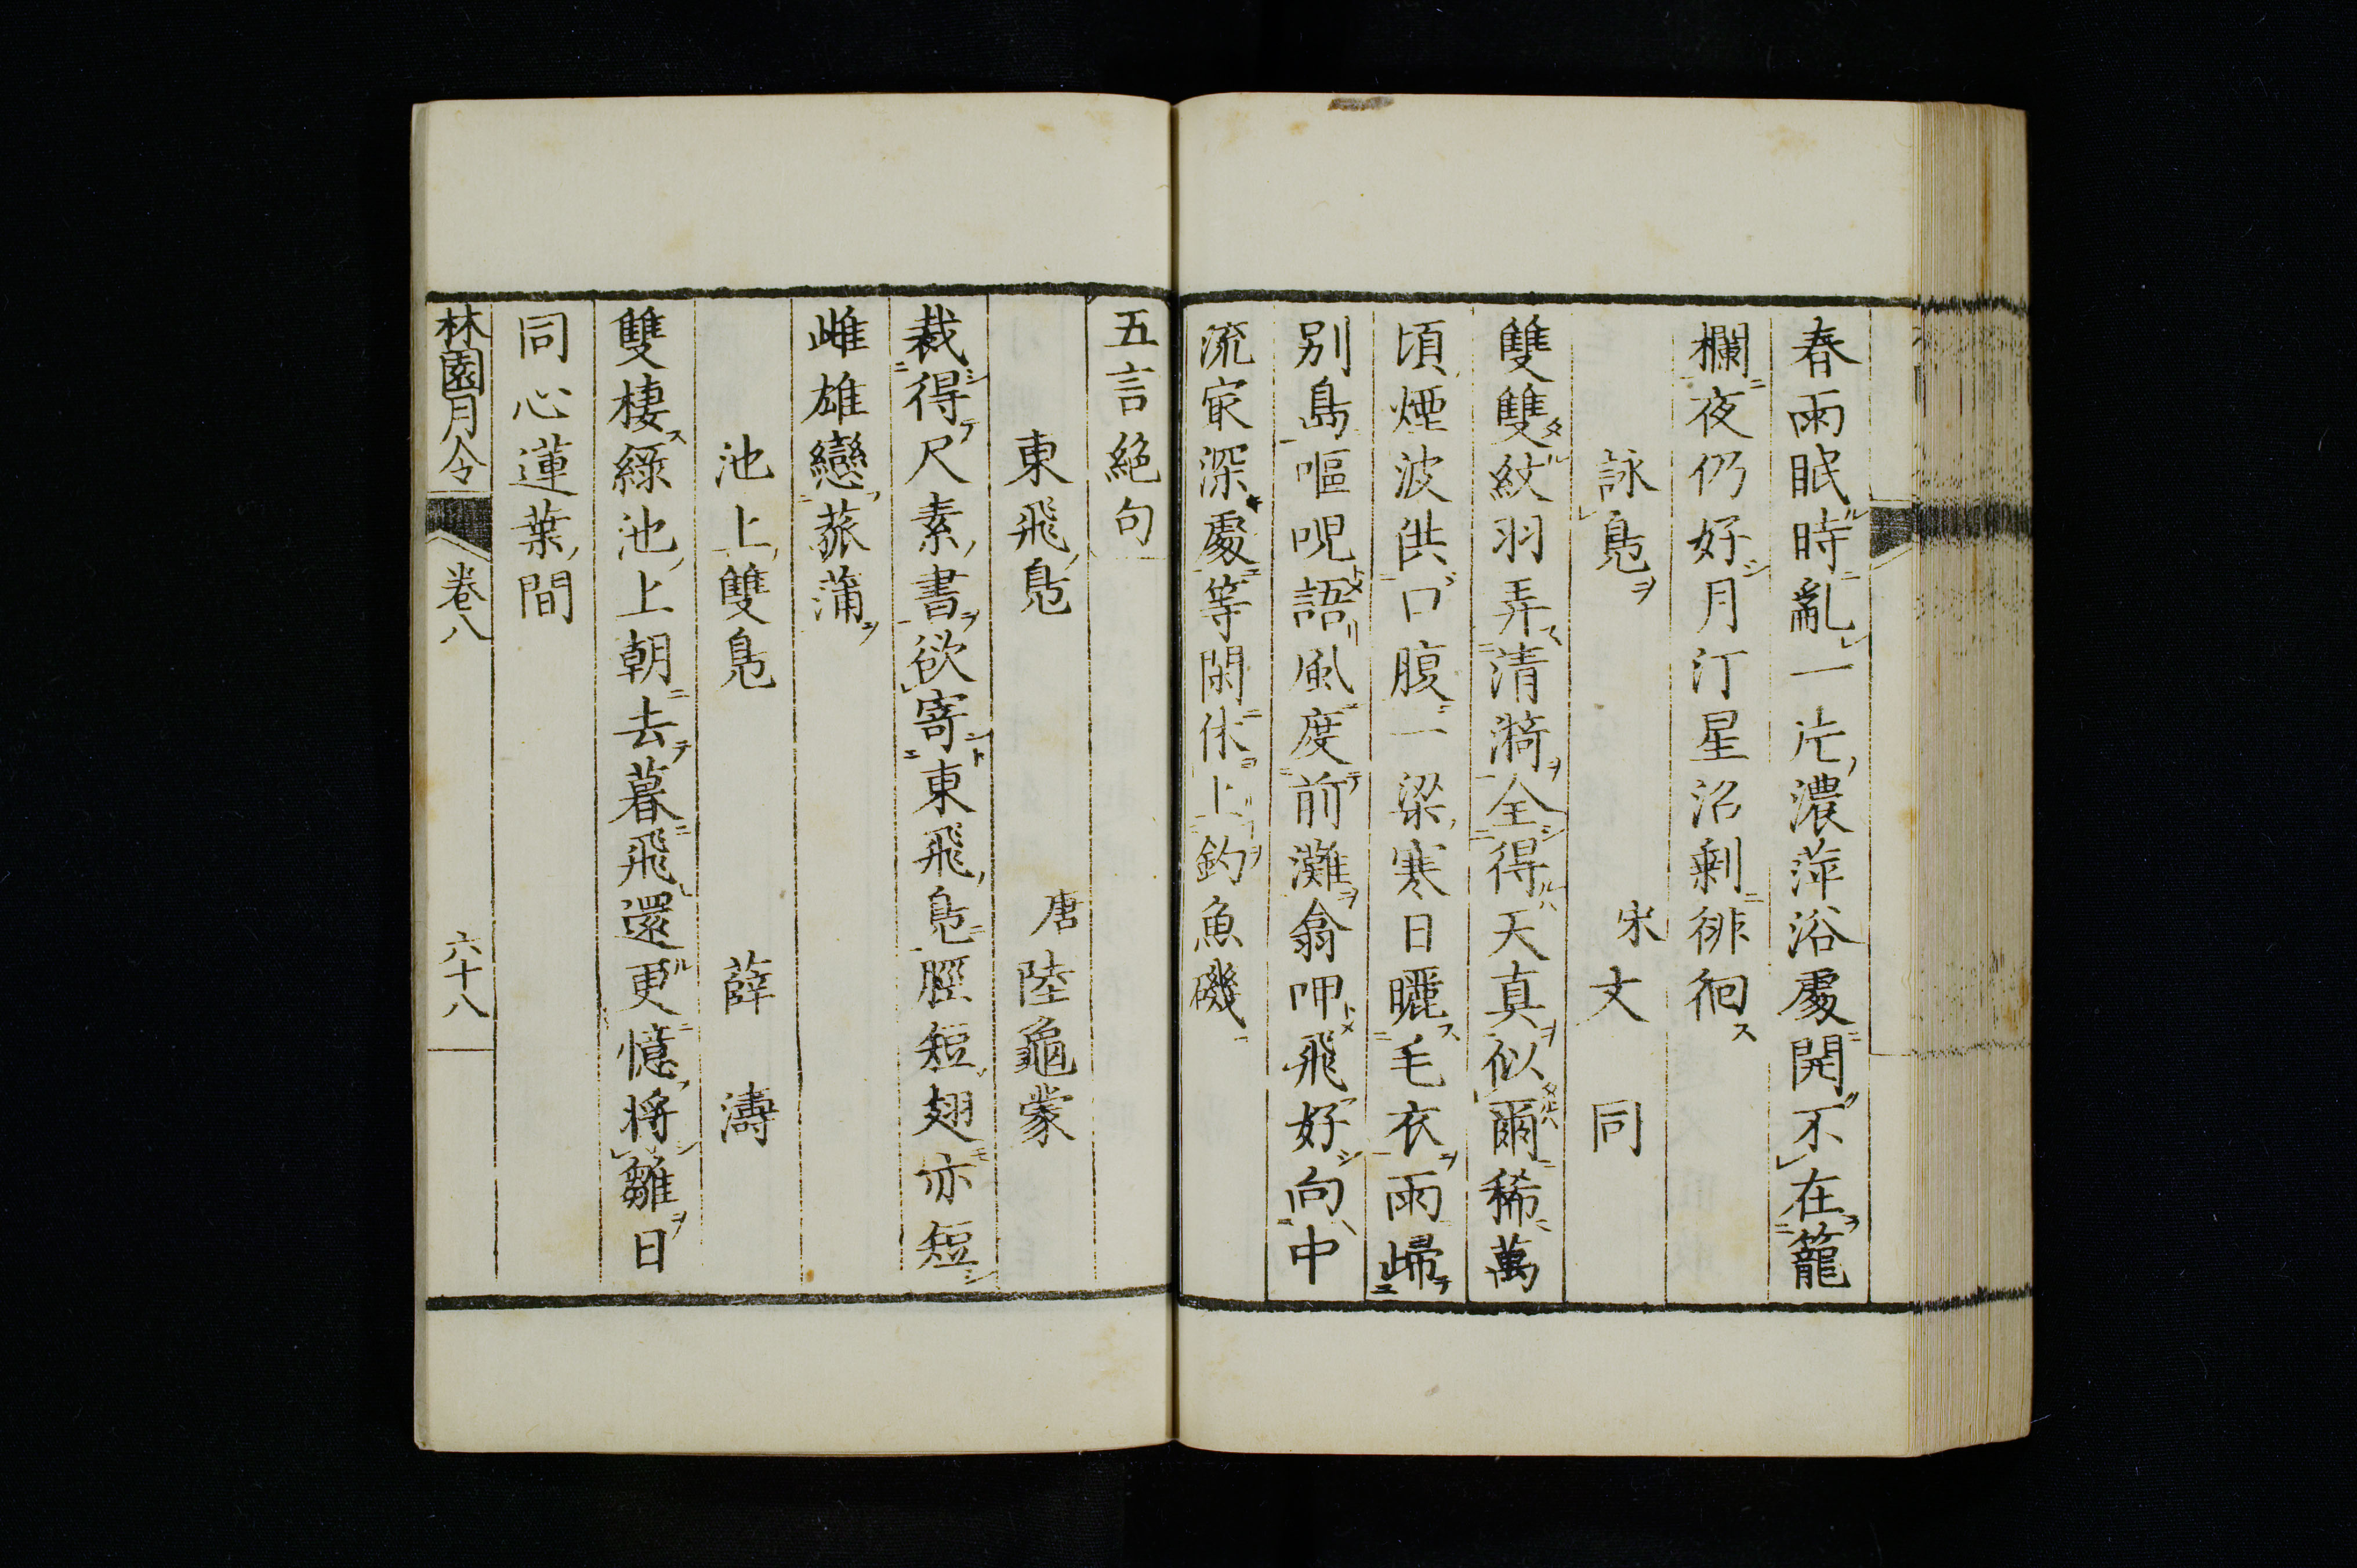 春雨眠時亂一片濃萍浴處開不在籠
欄夜仍好月汀星沼剩徘徊
詠鳧 宋文同
雙雙紋羽弄清漪全得天真似爾稀萬
頃煙波供口腹一梁寒日曬毛衣雨歸
別島嘔呢語風度前灘翕呷飛好向中
流㝡深處等閑休上釣魚磯
五言絕句
東飛鳧 唐陸龜蒙
裁得尺素書欲寄東飛鳧脛短翅亦短
雌雄戀菰蒲
池上雙鳧 薛濤
雙棲綠池上朝去暮飛還更憶將雛日
同心蓮葉間
林園月令 卷八 六十八